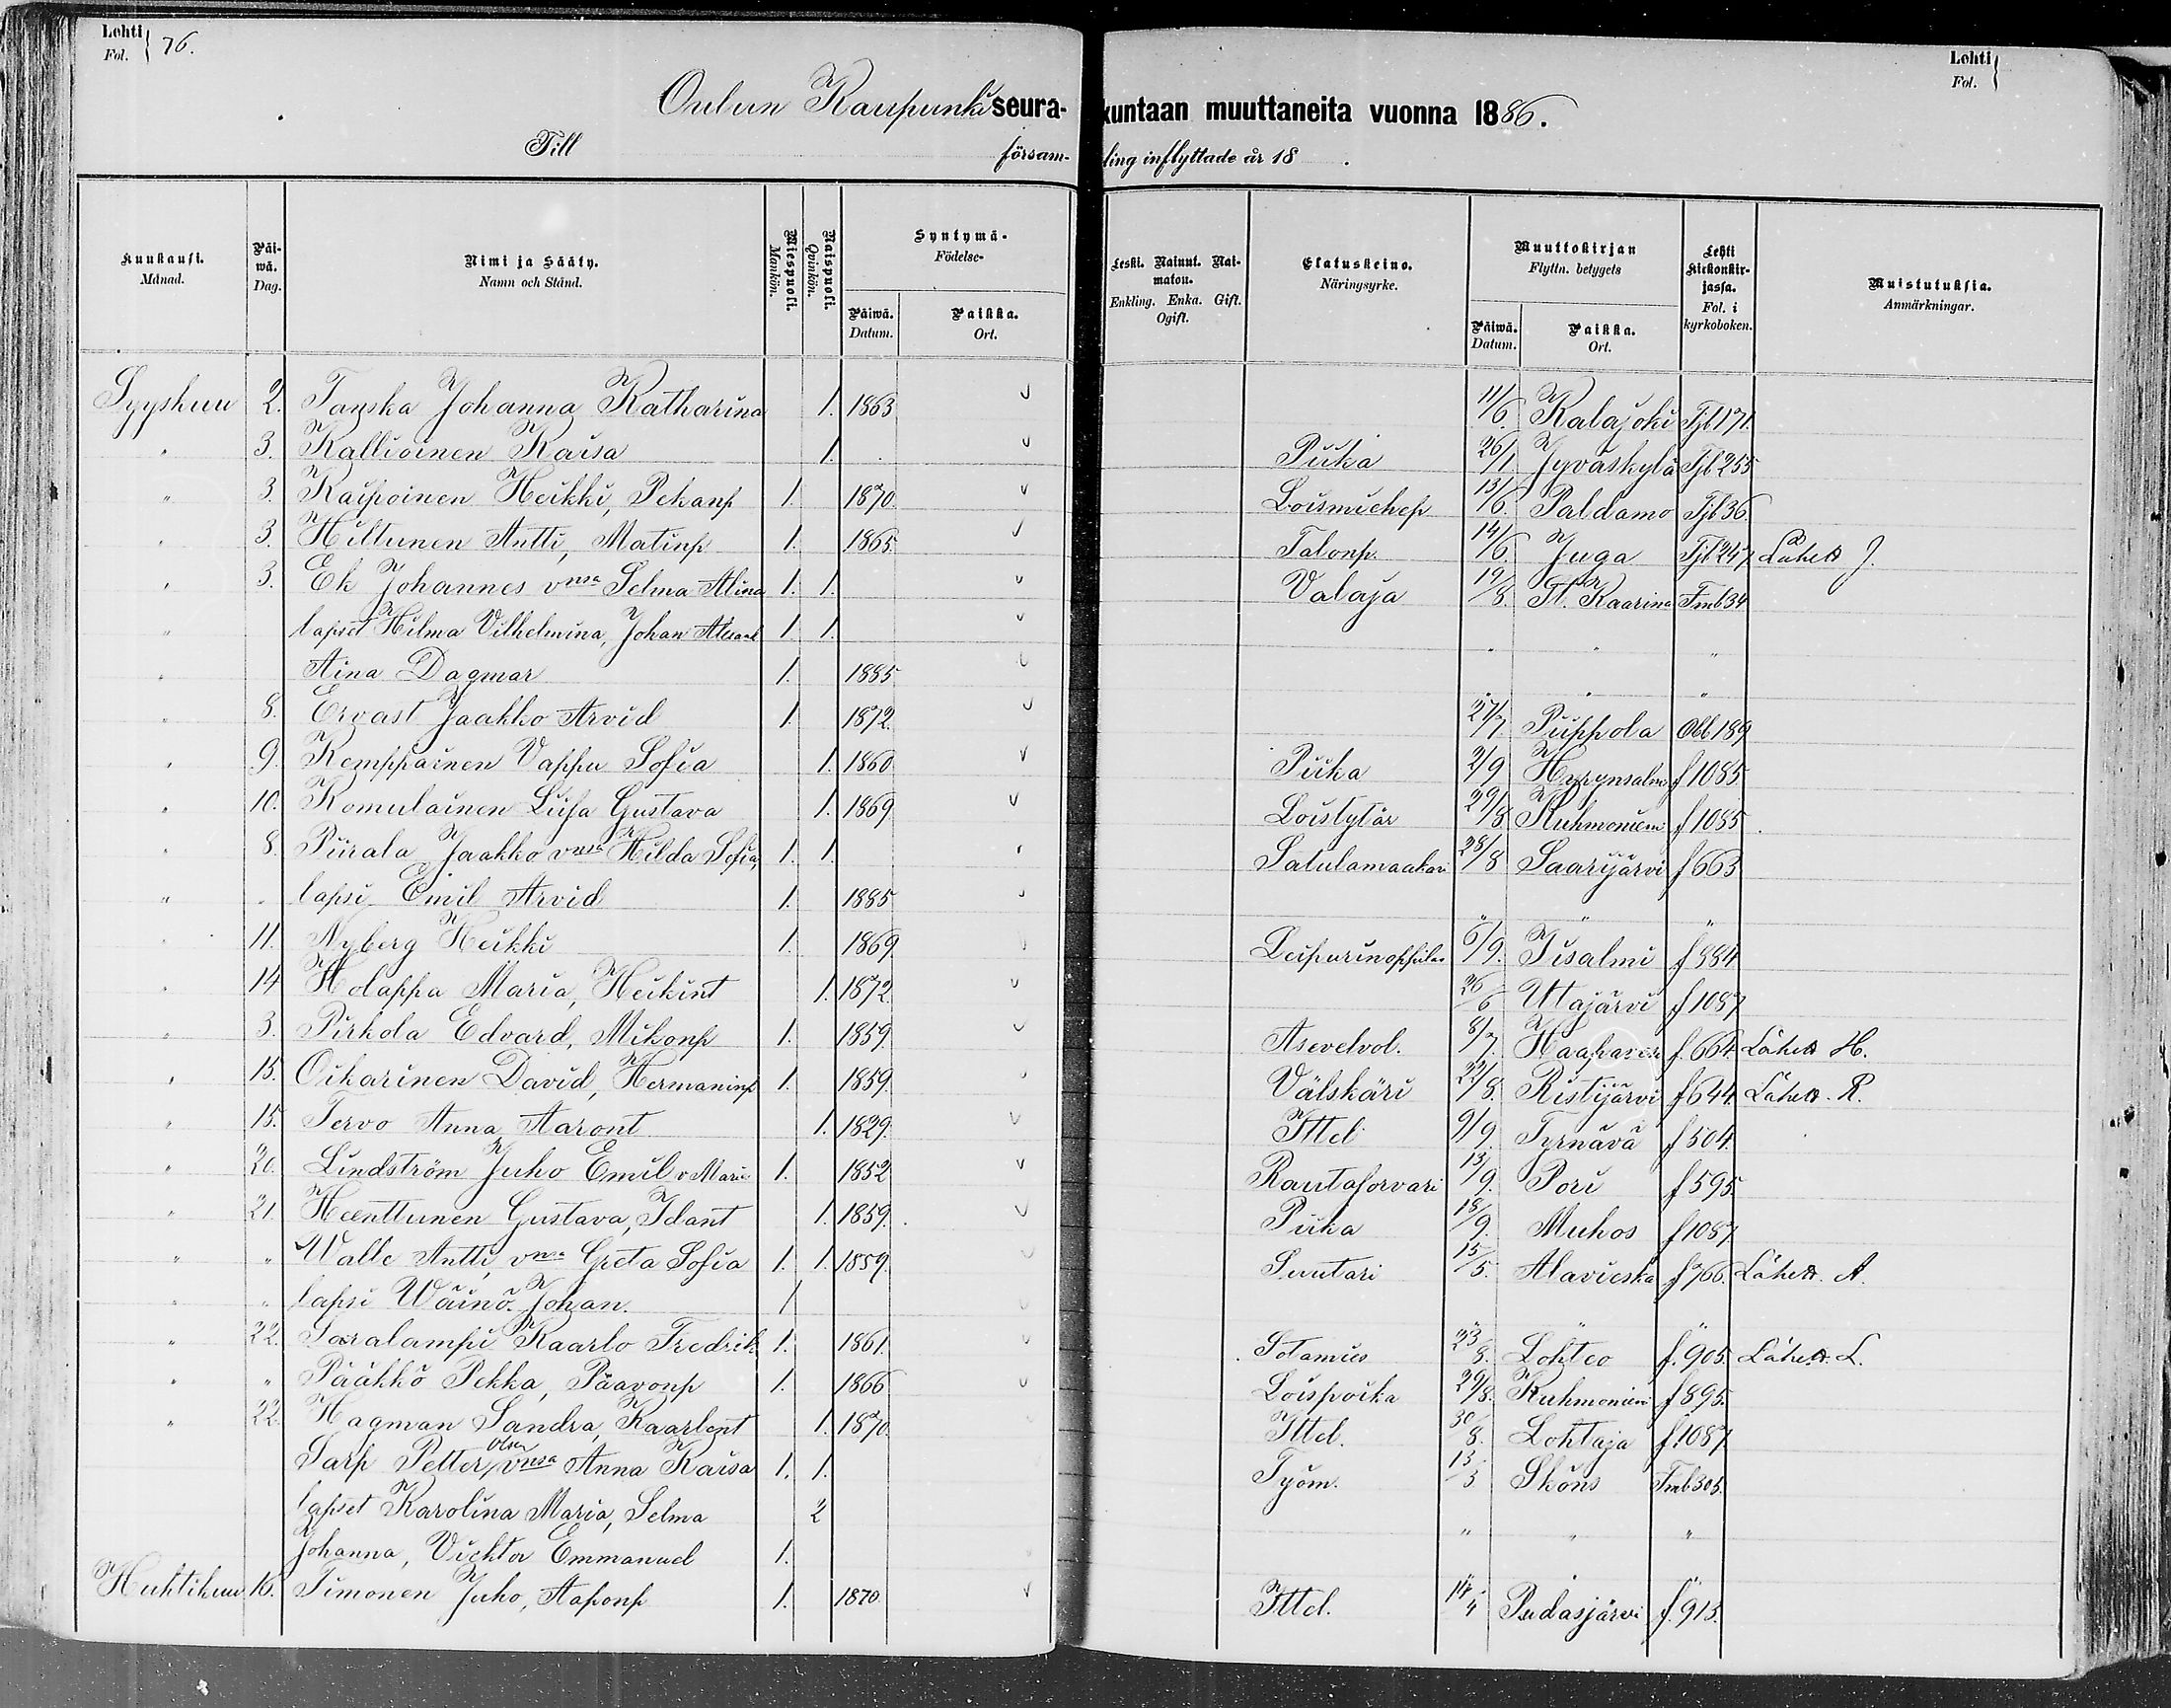 Lehti
Fol. } 76.
Lehti
Fol. {
Oulun Kaupunki seurakuntaan muuttaneita vuonna 1886.
Till församling inflyttade år 18 .
Kuukausi. Månad. | Päiwä. Dag. | Nimi ja Sääty. Namn och Stånd. | Miespuoli. Mankön. | Naispuoli. Qvinkön. | Syntymä- Födelse- Päiwä. Datum. | Paikka. Ort. | Leski. Nainut. Naimaton. Enkling. Enka. Gift. Ogift. | Elatuskeino. Näringsyrke. | Muuttokirjan Flyttn. betygets Päiwä. Datum. | Paikka. Ort. | Lehti kirkonkirjassa. Fol. i kyrkoboken. | Muistutuksia. Anmärkningar.
Syyskuu 2. Tanska Johanna Katharina 1. 1863 11/6. Kalajoki Tjb171
" 3. Kallioinen Kaisa 1. Piika 26/1 Jyväskylä Tjb255
" 3. Kaipoinen Heikki, Pekanp 1. 1870. Loismiehep 13/6. Paldamo Tjb36.
" 3. Hiltunen Antti, Matinp 1. 1865. Talonp. 14/6. Juga Tjb247 Lähett J.
" 3. Ek Johannes vmsa Selma Alina 1. 1. Valaja 19/8. St. Kaarina Tmb34
" lapset Hilma Vilhelmina, Johan 1. 1. " " "
" Aina Dagmar 1. 1885 " " "
" 8. Ervast Jaakko Arvid 1. 1872. 27/7 Piippola Obb189
" 9. Kemppainen Vappu Sofia 1. 1860 Piika 2/9 Hyrynsalmi f1085.
" 10. Komulainen Liisa Gustava 1. 1869 Loistytär 29/8 Kuhmoniemi f1085.
" 8. Piirala Jaakko vmsa Hilda Sofia, 1. 1. Satulamaakari 28/8 Saarijärvi f663
" " lapsi Emil Arvid 1. 1885 " " "
" 11. Nyberg Heikki 1. 1869. 6/9. Iisalmi f884
" 14 Holappa Maria, Heikint 1. 1872. 26/6 Utajärvi f1087
" 3. Pirkola Edvard, Mikonp 1. 1859. Asevelvol. 8/7. Haapavesi f.664. Lähett H.
" 15. Oikarinen David, Hermaninp 1. 1859. Välskäri 22/8. Ristijärvi f644. Lähett. R.
" 15. Tervo Anna Aaront 1. 1829. Ittel 9/9. Tyrnävä f504.
" 20. Lindström Juho Emil v Maria 1. 1852 Rautasorvari 13/9. Pori f595.
" 21. Heenttunen Gustava, Idant 1. 1859. Piika 18/9. Muhos f1087
" " Walle Antti, vmsa Greta Sofia 1. 1. 1859. Suutari 15/5. Alavieska f766. Lähett. A.
" " lapsi Wäinö Johan. 1 " " "
" 22. Saralampi Kaarlo Fredrik 1. 1861. Sotamies 23/8. Lohteo f.905. Lähett. L.
" " Pääkkö Pekka, Paavonp 1. 1866 Loispoika 29/8. Kuhmoniemi f895.
" 22. Hagman Sandra, Kaarlent 1. 1870. Ittel. 30/8. Lohtaja f.1087
Sarp Petter Olsen vmsa Anna Kaisa 1. 1. Työm. 13/3 Sköns Tmb305.
lapset Karolina Maria, Selma 2 " " "
Johanna, Vicktor Emmanuel 1.
Huhtikuu 16. Timonen Juho, Aaponp 1. 1870. Ittel. 14/4 Pudasjärvi f.913.